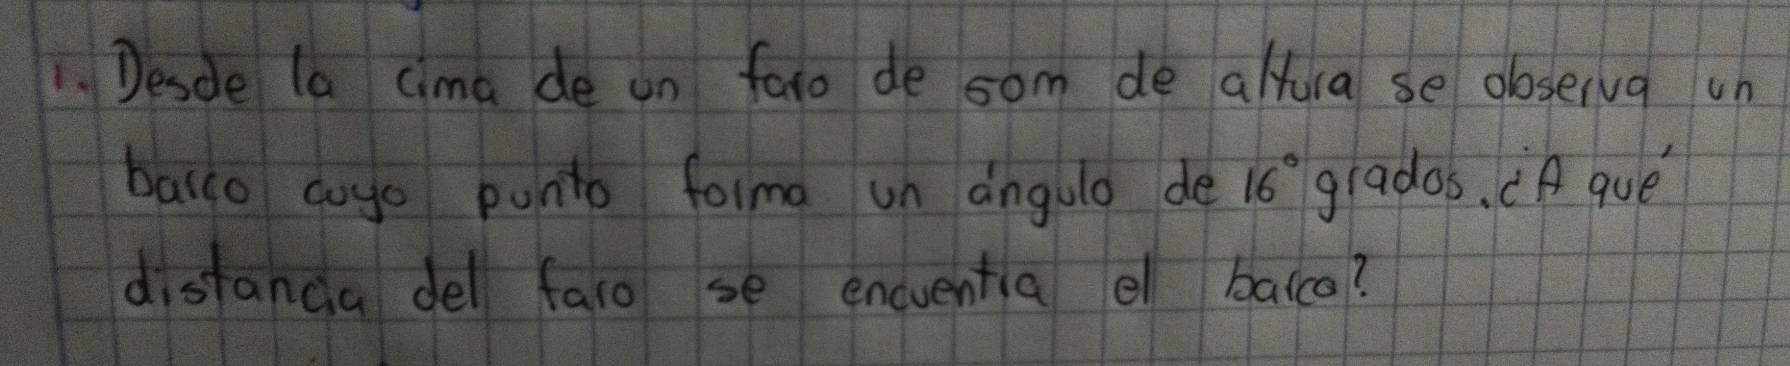 1. Desde la cima de un faro de 50m de altura se observa un
barco cuyo punto forma un ángulo de 16° grados. ¿A qué
distancia del faro se encuentra el barco?